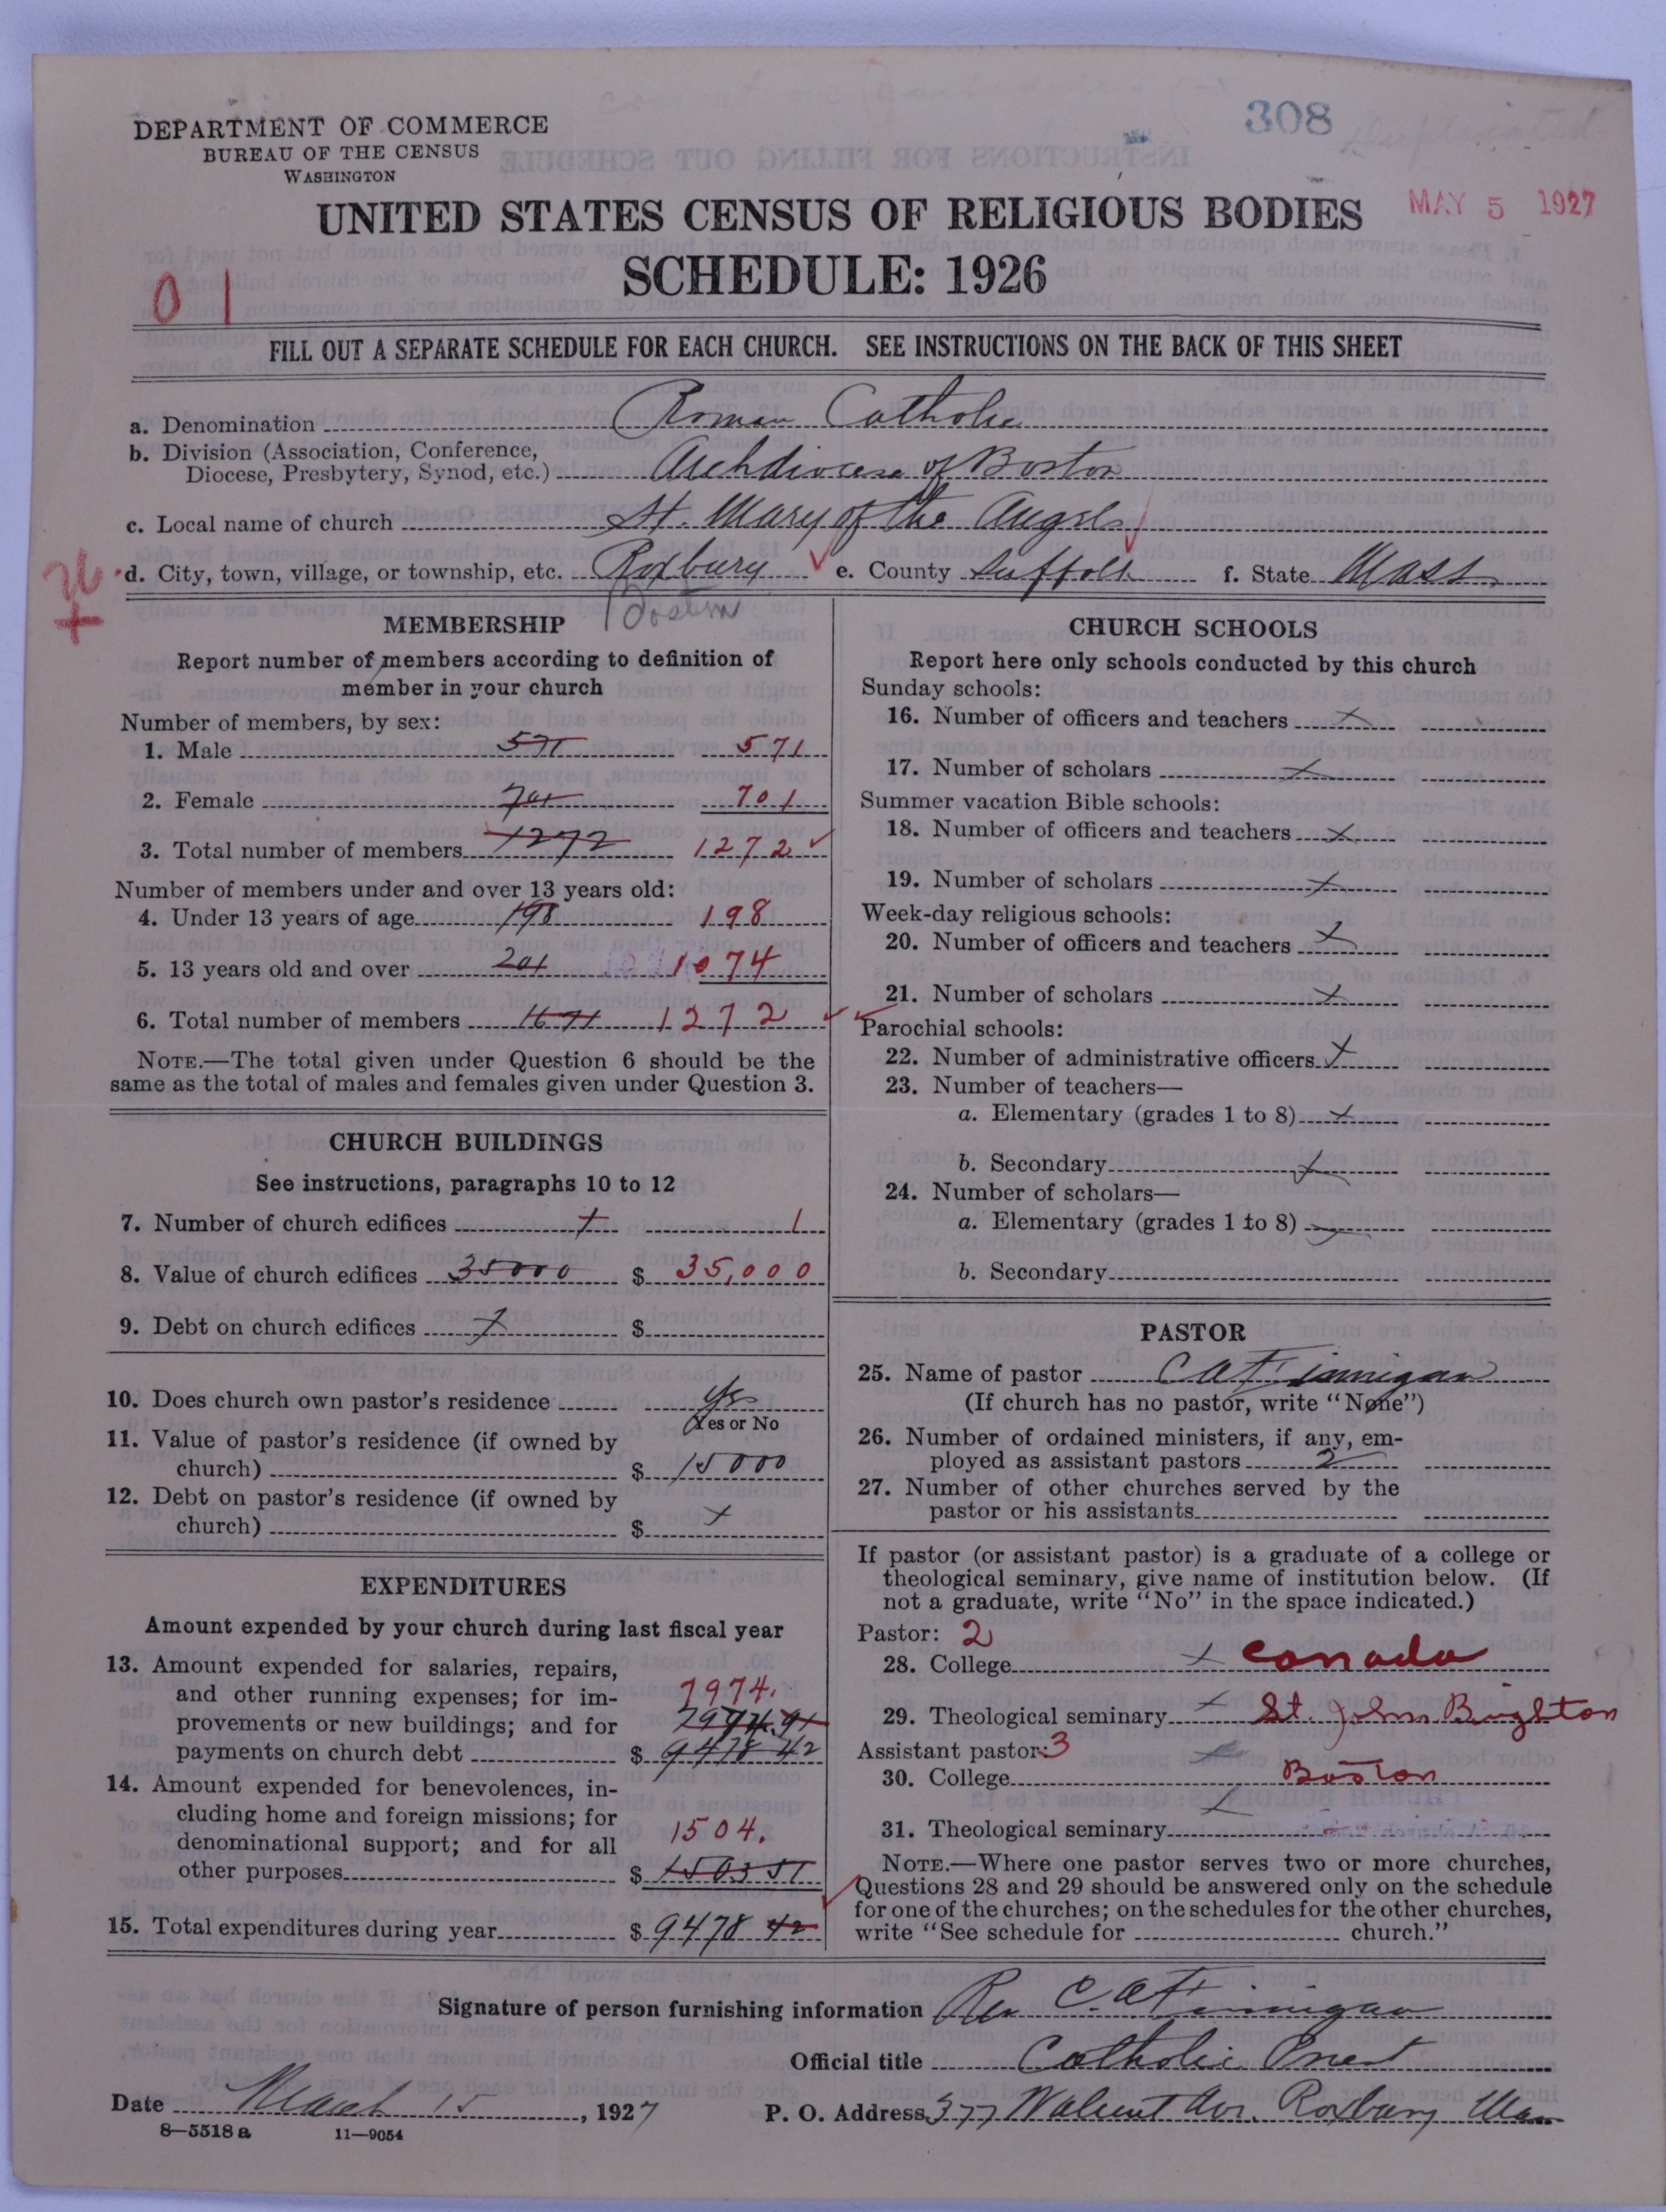 308
DEPARTMENT OF COMMERCE
BUREAU OF THE CENSUS
WASHINGTON
UNITED STATES CENSUS OF RELIGIOUS BODIES
MAY 5 1927
SCHEDULE: 1926
01
FILL OUT A SEPARATE SCHEDULE FOR EACH CHURCH. SEE INSTRUCTIONS ON THE BACK OF THIS SHEET
a. Denomination Roman Catholic
b. Division (Association, Conference,
Diocese, Presbytery, Synod, etc.) Archdiocese of Boston
c. Local name of church St. Mary of the Angels
d. City, town, village, or township, etc. Roxbury e. County Suffolk f. State Mass
Boston
MEMBERSHIP
Report number of members according to definition of
member in your church
Number of members, by sex:
1. Male 571 571
2. Female 701 701
3. Total number of members 1272 1272
Number of members under and over 13 years old:
4. Under 13 years of age 198 198
5. 13 years old and over 201 1074
6. Total number of members 1671 1272
NOTE.—The total given under Question 6 should be the
same as the total of males and females given under Question 3.
CHURCH BUILDINGS
See instructions, paragraphs 10 to 12
7. Number of church edifices 1 1
8. Value of church edifices 35000 $ 35,000
9. Debt on church edifices x $
10. Does church own pastor's residence Yes
Yes or No
11. Value of pastor's residence (if owned by
church) $ 15000
12. Debt on pastor's residence (if owned by
church) $ x
EXPENDITURES
Amount expended by your church during last fiscal year
13. Amount expended for salaries, repairs,
and other running expenses; for im-
7974.
provements or new buildings; and for 7974.91
payments on church debt $ 9478 42
14. Amount expended for benevolences, in-
cluding home and foreign missions; for
denominational support; and for all 1504.
other purposes $ 1503 51
15. Total expenditures during year $ 9478 42
CHURCH SCHOOLS
Report here only schools conducted by this church
Sunday schools:
16. Number of officers and teachers x
17. Number of scholars x
Summer vacation Bible schools:
18. Number of officers and teachers x
19. Number of scholars x
Week-day religious schools:
20. Number of officers and teachers x
21. Number of scholars x
Parochial schools:
22. Number of administrative officers x
23. Number of teachers—
a. Elementary (grades 1 to 8) x
b. Secondary x
24. Number of scholars—
a. Elementary (grades 1 to 8) x
b. Secondary
PASTOR
25. Name of pastor C A Finnigan
(If church has no pastor, write "None")
26. Number of ordained ministers, if any, em-
ployed as assistant pastors 2
27. Number of other churches served by the
pastor or his assistants
If pastor (or assistant pastor) is a graduate of a college or
theological seminary, give name of institution below. (If
not a graduate, write "No" in the space indicated.)
Pastor: 2
28. College x Canada
29. Theological seminary x St. Johns Brighton
Assistant pastor: 3 x
30. College Boston
x
31. Theological seminary
NOTE.—Where one pastor serves two or more churches,
Questions 28 and 29 should be answered only on the schedule
for one of the churches; on the schedules for the other churches,
write "See schedule for church."
Signature of person furnishing information Rev C. A Finnigan
Official title Catholic Priest
Date March 15, 1927 P. O. Address 377 Walnut Ave. Roxbury Mass
8—5518 a 11—9054